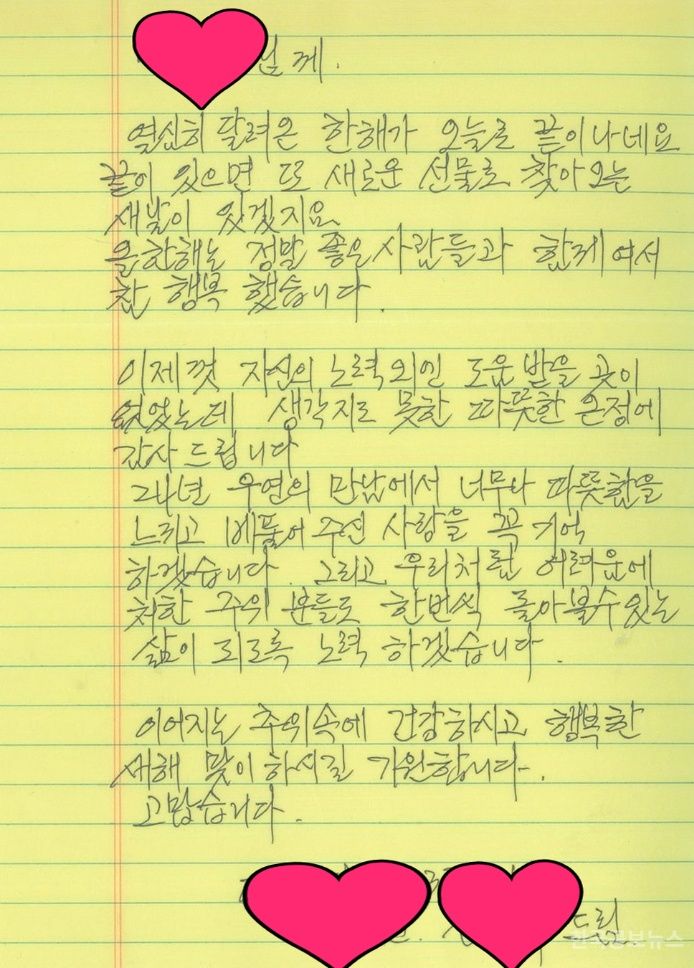 님께.
열심히 달려온 한해가 오늘로 끝이나네요
끝이 있으면 또 새로운 선물로 찾아오는
새날이 있겠지요
올한해는 정말 좋은사람들과 함께여서
참 행복 했습니다.
이제껏 자신의 노력외인 도움받을 곳이
없었는데 생각지도 못한 따뜻한 온정에
감사드립니다
그녀면 우연의 만남에서 너무나 따뜻함을
느끼고 베풀어 주신 사랑을 꼭 기억
하겠습니다. 그리고 우리처럼 어려움에
처한 주위 분들도 한번씩 돌아볼수있는
삶이 되도록 노력 하겠습니다.
이어지는 추위속에 건강하시고 행복한
새해 맞이하시길 기원합니다.
고맙습니다.
드림.
한국공보뉴스